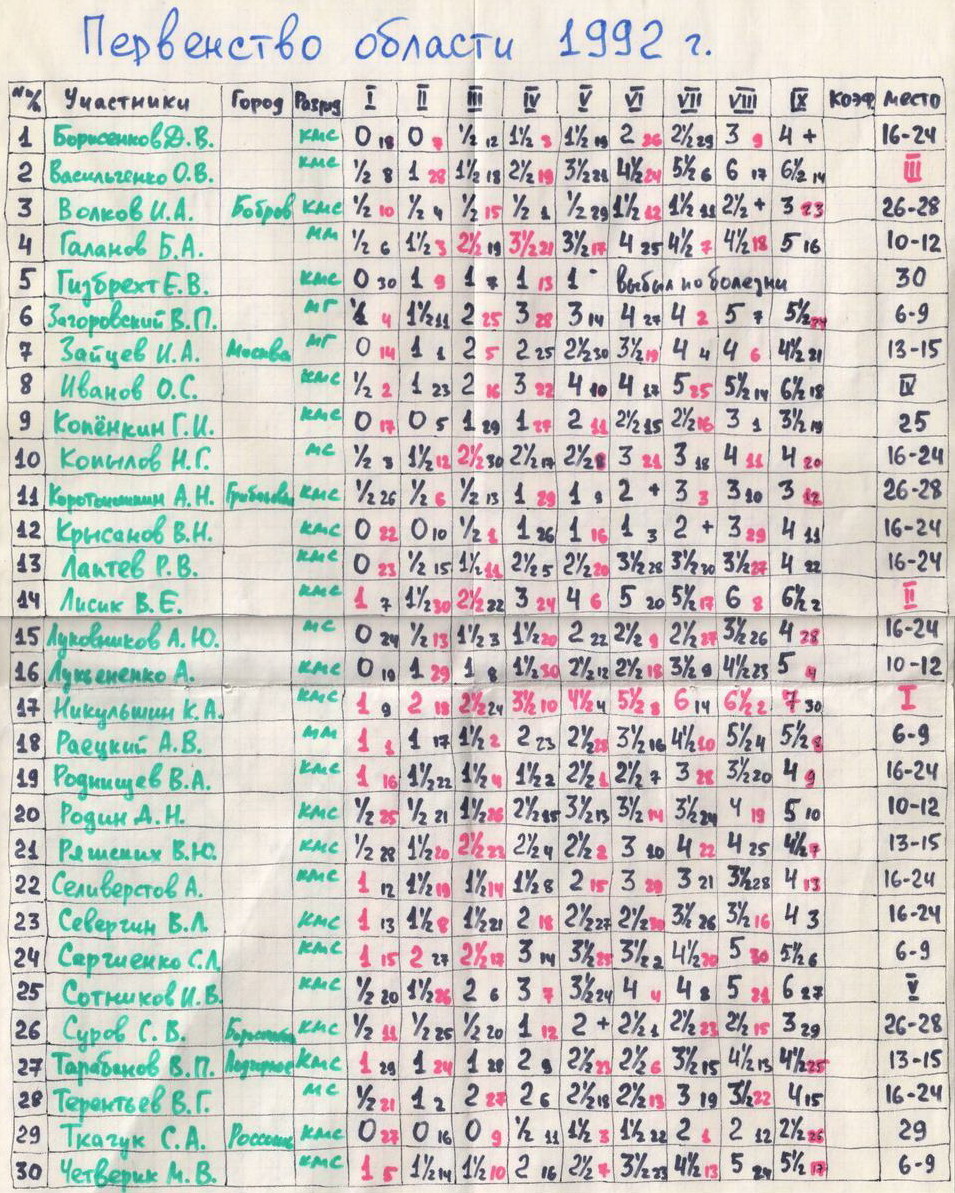 Первенство области 1992 г.
№ п/п Участники Город Разряд I II III IV V VI VII VIII IX Коэф место
1 Борисенков Д.В. кмс 0 18 0 7 ½ 12 1½ 3 1½ 19 2 26 2½ 29 3 9 4 + 16-24
2 Васильченко О.В. кмс ½ 8 1 28 1½ 18 2½ 19 3½ 21 4½ 24 5½ 6 6 17 6½ 14 III
3 Волков И.А. Бобров кмс ½ 10 ½ 4 ½ 15 ½ 1 ½ 29 1½ 12 1½ 11 2½ + 3 23 26-28
4 Галанов Б.А. мм ½ 6 1½ 3 2½ 19 3½ 21 3½ 17 4 25 4½ 7 4½ 18 5 16 10-12
5 Гизбрехт Е.В. кмс 0 30 1 9 1 7 1 13 1 - выбыл по болезни 30
6 Загоровский В.П. мг 4 1½ 11 2 25 3 28 3 14 4 27 4 2 5 7 5½ 24 6-9
7 Зайцев И.А. Москва мг 0 14 1 1 2 5 2 25 2½ 30 3½ 19 4 4 4 6 4½ 21 13-15
8 Иванов О.С. кмс ½ 2 1 23 2 16 3 22 4 10 4 17 5 25 5½ 14 6½ 18 IV
9 Копёнкин Г.И. кмс 0 17 0 5 1 29 1 27 2 11 2½ 15 2½ 16 3 1 3½ 19 25
10 Копылов Н.Г. мс ½ 3 1½ 12 2½ 30 2½ 17 2½ 8 3 21 3 18 4 11 4 20 16-24
11 А.Н. кмс ½ 26 ½ 6 ½ 13 1 29 1 9 2 + 3 3 3 10 3 12 26-28
12 Крысанов В.Н. кмс 0 22 0 10 ½ 1 1 26 1 16 1 3 2 + 3 29 4 11 16-24
13 Лаптев Р.В. кмс 0 23 ½ 15 1½ 11 2½ 5 2½ 20 3½ 28 3½ 30 3½ 27 4 22 16-24
14 Лисик В.Е. кмс 1 7 1½ 30 2½ 22 3 24 4 6 5 20 5½ 17 6 8 6½ 2 II
15 Луковников А.Ю. мс 0 24 ½ 13 1½ 3 1½ 20 2 22 2½ 9 2½ 27 3½ 26 4 28 16-24
16 Лукьененко А. кмс 0 19 1 29 1 8 1½ 30 2½ 12 2½ 18 3½ 9 4½ 23 5 4 10-12
17 Никульшин К.А. кмс 1 9 2 18 2½ 24 3½ 10 4½ 4 5½ 8 6 14 6½ 2 7 30 I
18 Раецкий А.В. мм 1 1 1 17 1½ 2 2 23 2½ 28 3½ 16 4½ 10 5½ 4 5½ 8 6-9
19 Роднищев В.А. кмс 1 16 1½ 22 1½ 4 1½ 2 2½ 1 2½ 7 3 28 3½ 20 4 9 16-24
20 Родин Д.Н. кмс ½ 25 ½ 21 1½ 26 2½ 15 3½ 13 3½ 14 3½ 24 4 19 5 10 10-12
21 Ряшских В.Ю. кмс ½ 28 1½ 20 2½ 23 2½ 4 2½ 2 3 10 4 22 4 25 4½ 7 13-15
22 Селиверстов А. кмс 1 12 1½ 19 1½ 14 1½ 8 2 15 3 29 3 21 3½ 28 4 13 16-24
23 Севергин В.Л. кмс 1 13 1½ 8 1½ 21 2 18 2½ 27 2½ 30 3½ 26 3½ 16 4 3 16-24
24 Саргиенко С.Л. кмс 1 15 2 27 2½ 17 3 14 3½ 25 3½ 2 4½ 20 5 30 5½ 6 6-9
25 Сотников И.В. кмс ½ 20 1½ 26 2 6 3 7 3½ 24 4 4 4 8 5 21 6 27 V
26 Суров С.В. кмс ½ 11 ½ 25 ½ 20 1 12 2 + 2½ 1 2½ 23 2½ 15 3 29 26-28
27 Тарабанов В.П. кмс 1 29 1 24 1 28 2 9 2½ 23 2½ 6 3½ 15 4½ 13 4½ 25 13-15
28 Терентьев В.Г. мс ½ 21 1 2 2 27 2 6 2½ 18 2½ 13 3 19 3½ 22 4 15 16-24
29 Ткачук С.А. Россошь кмс 0 27 0 16 0 9 ½ 11 1½ 3 1½ 22 2 1 2 12 2½ 26 29
30 Четверик М.В. кмс 1 5 1½ 14 1½ 10 2 16 2½ 7 3½ 23 4½ 13 5 24 5½ 17 6-9